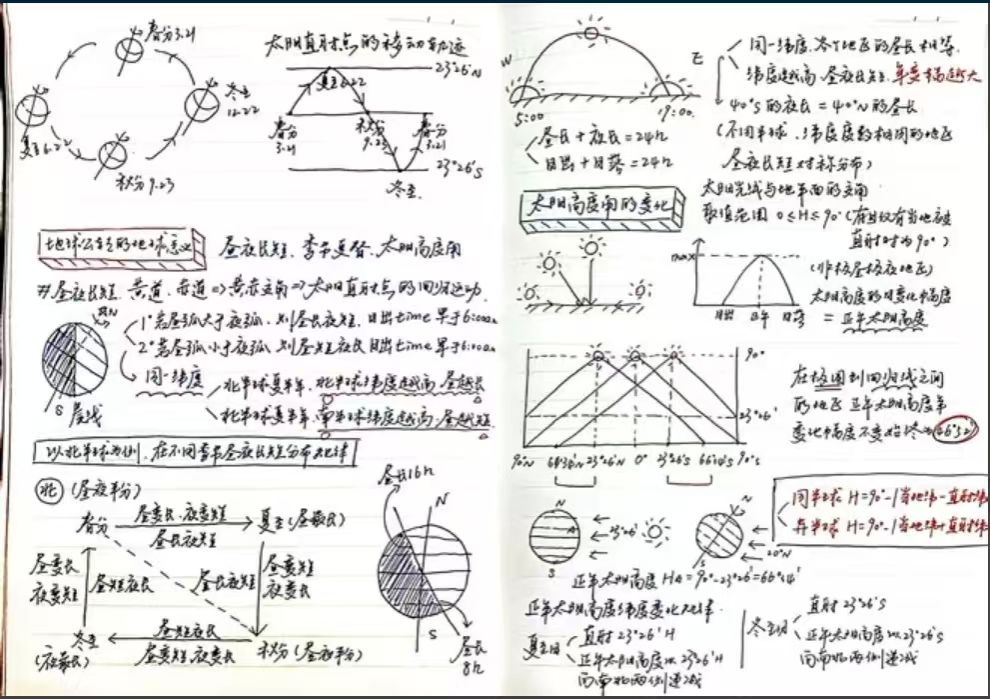 春分3.21
冬至
12.22
夏至6.22
秋分9.23
太阳直射点的移动轨迹
23°26′N
夏至6.22
春分
3.21
秋分
9.23
春分
3.21
23°26′S
冬至
地球公转的地球意义
昼夜长短、季节更替、太阳高度角
#昼夜长短 黄道、赤道=>黄赤交角=>太阳直射点的回归运动
N
S 晨线
1°若昼弧大于夜弧，则昼长夜短，日出time早于6:00am
2°若昼弧小于夜弧 则昼短夜长 日出time早于6:00am
同一纬度
北半球夏半年，北半球纬度越高，昼越长
北半球夏半年，南半球纬度越高，昼越短
以北半球为例，在不同季节昼夜长短分布规律
北 (昼夜平分)
春分
昼变长、夜变短
昼长夜短
夏至(昼最长)
昼变长
夜变短
昼短夜长
昼长夜短
昼变短
夜变长
冬至
(夜最长)
昼短夜长
昼变短、夜变长
秋分(昼夜平分)
昼长16h
N
S
昼长
8h
W
E
5:00
19:00
昼长+夜长=24h
日出+日落=24h
同一纬度，各个地区的昼长相等
纬度越高，昼夜长短，年变幅越大
40°S的夜长=40°N的昼长
(不同半球、纬度度数相同的地区
昼夜长短对称分布)
太阳高度角的变化
太阳光线与地平面的交角
取值范围 0≤H≤90°(有且仅有当地被
直射时为90°)
max
日出
正午
日落
(非极昼极夜地区)
太阳高度的日变化幅度
=正午太阳高度
90°
23°26′
90°N
66°34′N
23°26′N
0°
23°26′S
66°34′S
90°S
在极圈到回归线之间
的地区 正午太阳高度年
变化幅度不变始终为46°52′
同半球 H=90°-|当地纬-直射纬
异半球 H=90°-|当地纬+直射纬
N
A
S
23°26′
N
S
20°N
正午太阳高度 HA=90°-23°26′=66°34′
正午太阳高度纬度变化规律
夏至日
直射23°26′N
正午太阳高度从23°26′N
向南北两侧递减
冬至日
直射23°26′S
正午太阳高度从23°26′S
向南北两侧递减